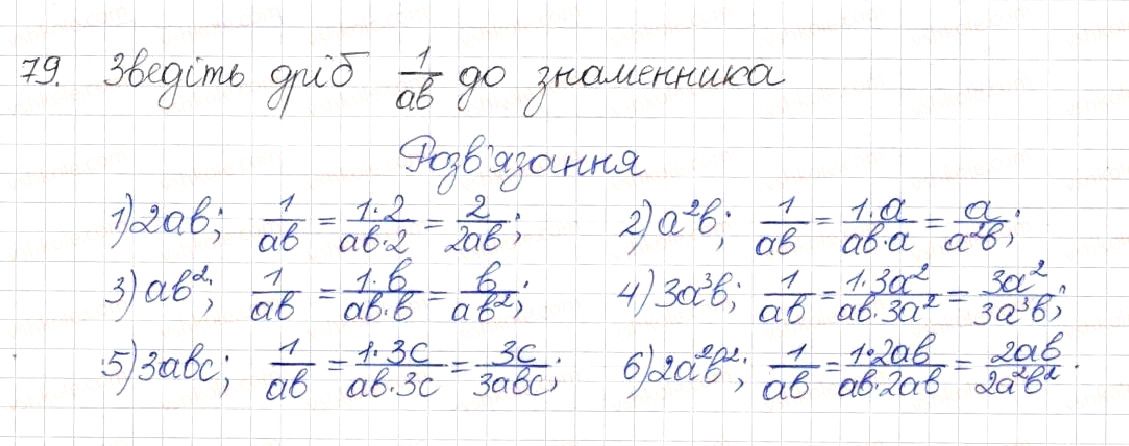 79. Зведіть дріб 1/ab до знаменника
Розв'язання
1) 2ab; 1/ab = 1·2/ab·2 = 2/2ab; 2) a²b; 1/ab = 1·a/ab·a = a/a²b;
3) ab²; 1/ab = 1·b/ab·b = b/ab²; 4) 3a³b; 1/ab = 1·3a²/ab·3a² = 3a²/3a³b;
5) 3abc; 1/ab = 1·3c/ab·3c = 3c/3abc; 6) 2a²b²; 1/ab = 1·2ab/ab·2ab = 2ab/2a²b².